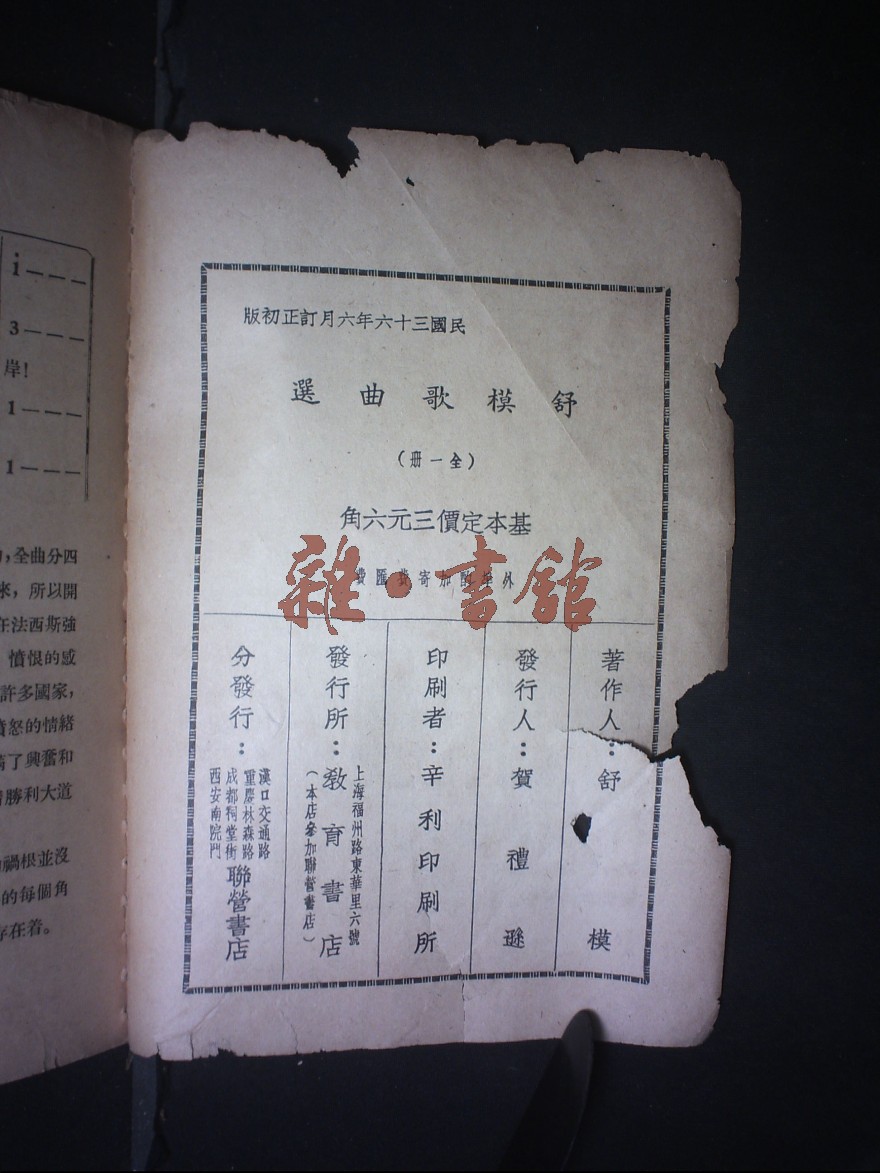 i———
3———
岸!
1———
1———
,全曲分四
來，所以開
在法西斯強
憤恨的感
許多國家，
憤怒的情緒
滿了興奮和
勝利大道
禍根並沒
的每個角
存在着。
民國三十六年六月訂正初版
舒模歌曲選
（全一册）
基本定價三元六角
外埠酌加寄費匯費
雜·書館
著作人：舒模
發行人：賀禮遜
印刷者：辛利印刷所
發行所：教育書店
上海福州路東華里六號
（本店參加聯營書店）
分發行：
漢口交通路
重慶林森路
成都祠堂街
西安南院門
聯營書店